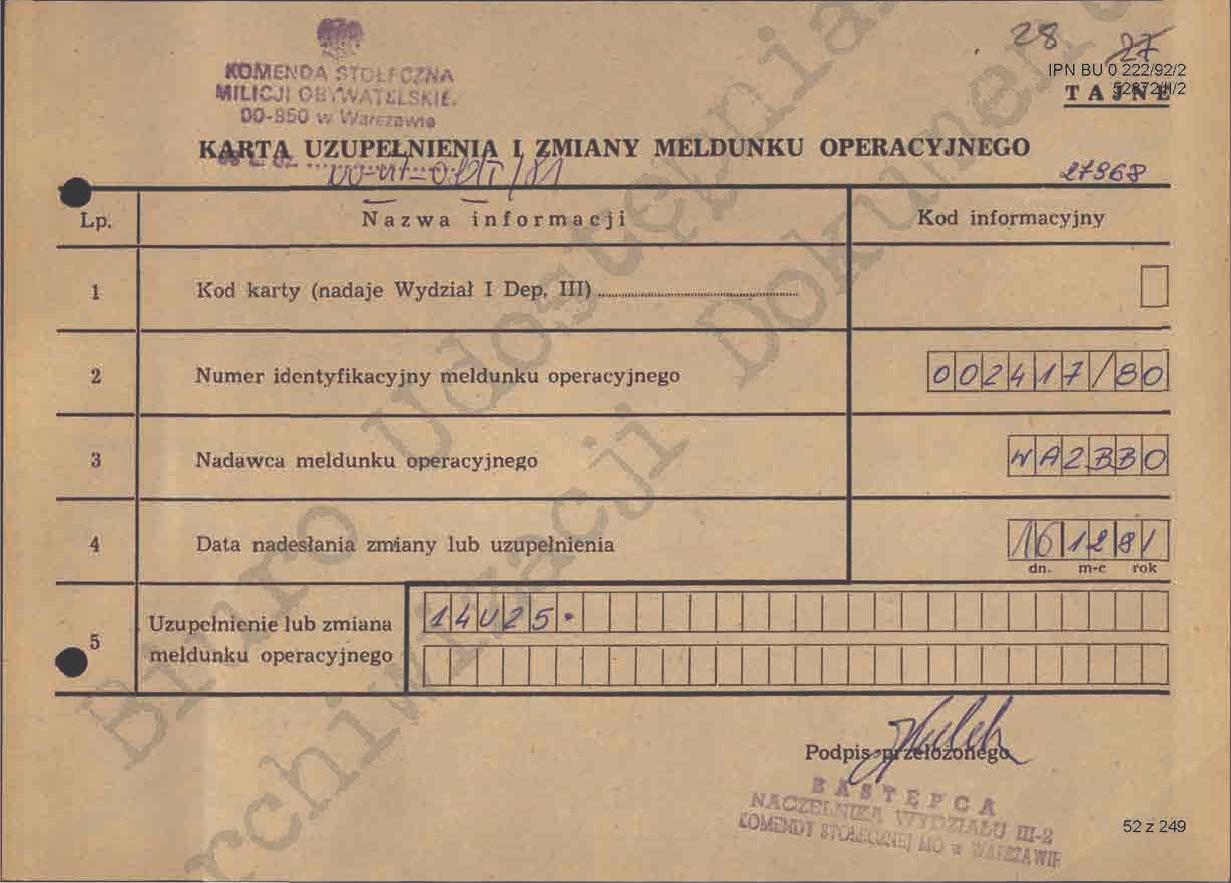 28 27
IPN BU 0 222/92/2
52872/II/2
TAJNE
KOMENDA STOŁECZNA
MILICJI OBYWATELSKIE.
00-950 w Warszawie
KARTA UZUPEŁNIENIA I ZMIANY MELDUNKU OPERACYJNEGO
27968
Lp. Nazwa informacji Kod informacyjny
1 Kod karty (nadaje Wydział I Dep. III)
2 Numer identyfikacyjny meldunku operacyjnego 002417/80
3 Nadawca meldunku operacyjnego WA2BB0
4 Data nadesłania zmiany lub uzupełnienia 161281
dn. m-c rok
5 Uzupełnienie lub zmiana
meldunku operacyjnego
14U25.
Podpis przełożonego
ZASTĘPCA
NACZELNIKA WYDZIAŁU III-2
KOMENDY STOŁECZNEJ MO w WARSZAWIE
52 z 249
Biuro Udostępnia
rchiwizacji Dokumen